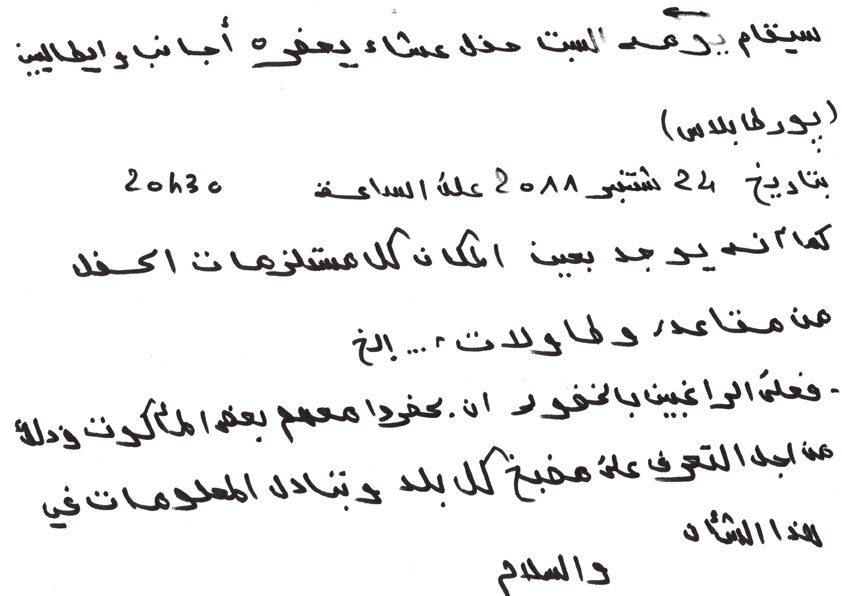 سيقام يوم السبت حفل عشاء يحضره أجانب و ايطاليين
(بورطا بلاس)
بتاريخ 24 شتنبر 2011 على الساعة 20H30
كما أنه يوجد بعين المكان كل مستلزمات الحفل
من مقاعد، وطاولات، ... إلخ
- فعلى الراغبين بالحضور ان يحضروا معهم بعض المأكولات وذلك
من اجل التعرف على مطبخ كل بلد وتبادل المعلومات في
هذا الشأن
والسلام